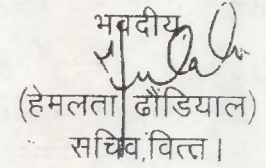 भवदीय
(हेमलता ढौंडियाल)
सचिव, वित्त।